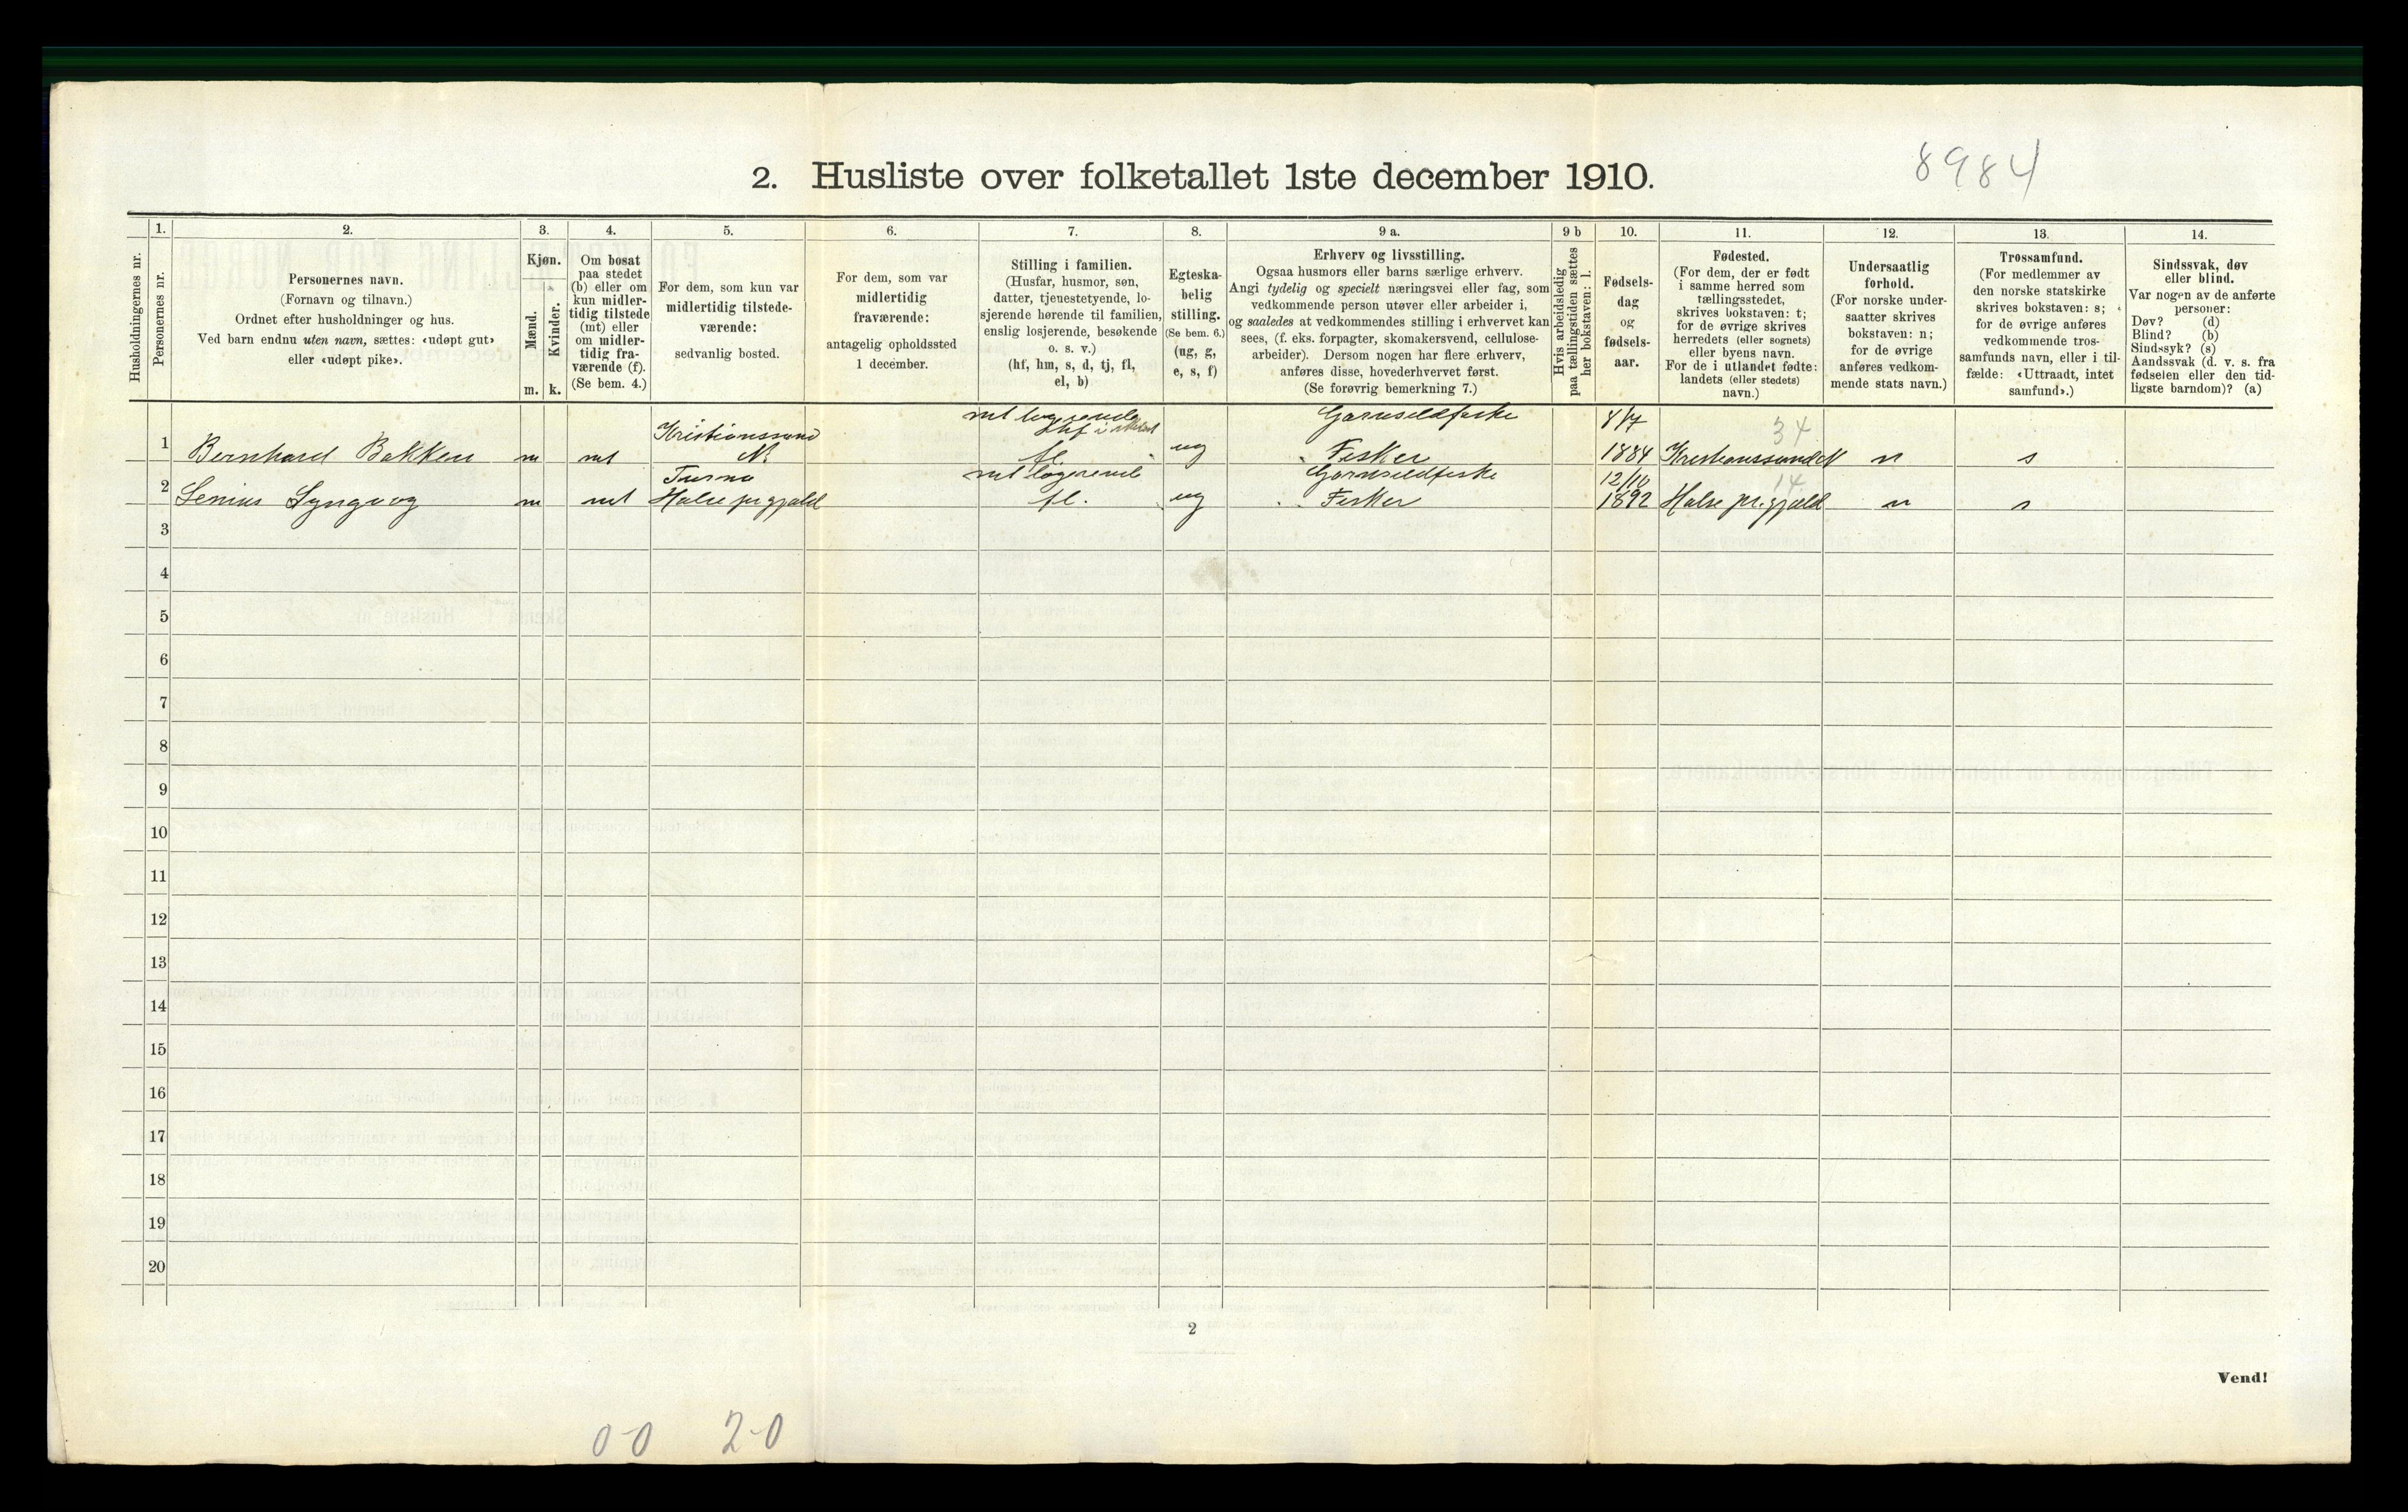 8984
2. Husliste over folketallet 1ste december 1910.
Husholdningernes nr.
1.
Personernes nr.
2.
Personernes navn.
(Fornavn og tilnavn.)
Ordnet efter husholdninger og hus.
Ved barn endnu uten navn, sættes: «udøpt gut»
eller «udøpt pike».
3.
Kjøn.
Mænd.
Kvinder.
m. k.
4.
Om bosat
paa stedet
(b) eller om
kun midler-
tidig tilstede
(mt) eller
om midler-
tidig fra-
værende (f).
(Se bem. 4.)
5.
For dem, som kun var
midlertidig tilstede-
værende:
sedvanlig bosted.
6.
For dem, som var
midlertidig
fraværende:
antagelig opholdssted
1 december.
7.
Stilling i familien.
(Husfar, husmor, søn,
datter, tjenestetyende, lo-
sjerende hørende til familien,
enslig losjerende, besøkende
o. s. v.)
(hf, hm, s, d, tj, fl,
el, b)
8.
Egteska-
belig
stilling.
(Se bem. 6.)
(ug, g,
e, s, f)
9 a.
Erhverv og livsstilling.
Ogsaa husmors eller barns særlige erhverv.
Angi tydelig og specielt næringsvei eller fag, som
vedkommende person utøver eller arbeider i,
og saaledes at vedkommendes stilling i erhvervet kan
sees, (f. eks. forpagter, skomakersvend, cellulose-
arbeider). Dersom nogen har flere erhverv,
anføres disse, hovederhvervet først.
(Se forøvrig bemerkning 7.)
9 b
Hvis arbeidsledig
paa tællingstiden sættes
her bokstaven: l.
10.
Fødsels-
dag
og
fødsels-
aar.
11.
Fødested.
(For dem, der er født
i samme herred som
tællingsstedet,
skrives bokstaven: t;
for de øvrige skrives
herredets (eller sognets)
eller byens navn.
For de i utlandet fødte:
landets (eller stedets)
navn.)
12.
Undersaatlig
forhold.
(For norske under-
saatter skrives
bokstaven: n;
for de øvrige
anføres vedkom-
mende stats navn.)
13.
Trossamfund.
(For medlemmer av
den norske statskirke
skrives bokstaven: s;
for de øvrige anføres
vedkommende tros-
samfunds navn, eller i til-
fælde: «Uttraadt, intet
samfund».)
14.
Sindssvak, døv
eller blind.
Var nogen av de anførte
personer:
Døv? (d)
Blind? (b)
Sindssyk? (s)
Aandssvak (d. v. s. fra
fødselen eller den tid-
ligste barndom)? (a)
mt logerende Garnsildfiske 8/7
Kristianssund 34
1 Bernhard Bakken m mt N. fl. ug Fisker 1884 Kristianssund N n s
mt logerende Garnsildfiske 12/10 14
2 Senius Lyngvog m mt Halse pr.gjæld fl. ug Fisker 1892 Halse pr.gjæld n s
3
4
5
6
7
8
9
10
11
12
13
14
15
16
17
18
19
20
2
Vend!
0-0 2-0